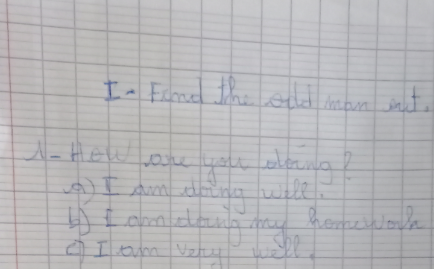 I - Find the odd man out.
1 - How are you doing?
a) I am doing well.
b) I am doing my homework
c) I am very well.